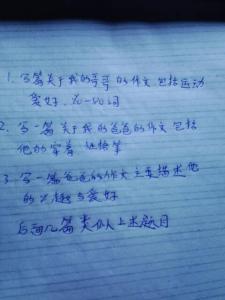 1. 写篇关于我的哥哥的作文,包括运动
爱好,70-80词
2. 写一篇关于我的爸爸的作文包括
他的穿着
3. 写一篇爸爸的作文主要描述他
的兴趣与爱好
后面几篇类似上述题目